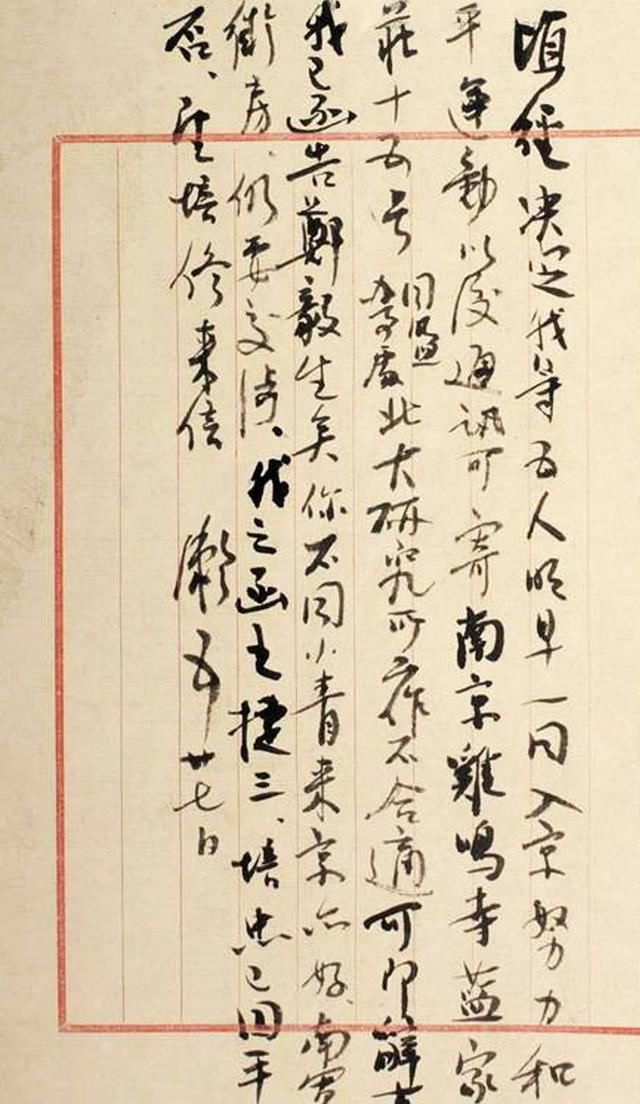 頃經決定我等五人明早一同入京努力和
平運動以後通訊可寄南京雞鳴寺藍家
莊十五号同盟辦事處北大研究所作不合適可即辭去
我已函告鄭毅生矣你不同小青來京亦好、南寬
街房、仍要交涉、我之函王捷三、培忠已回平
否、望培修來信 漱 廿七日